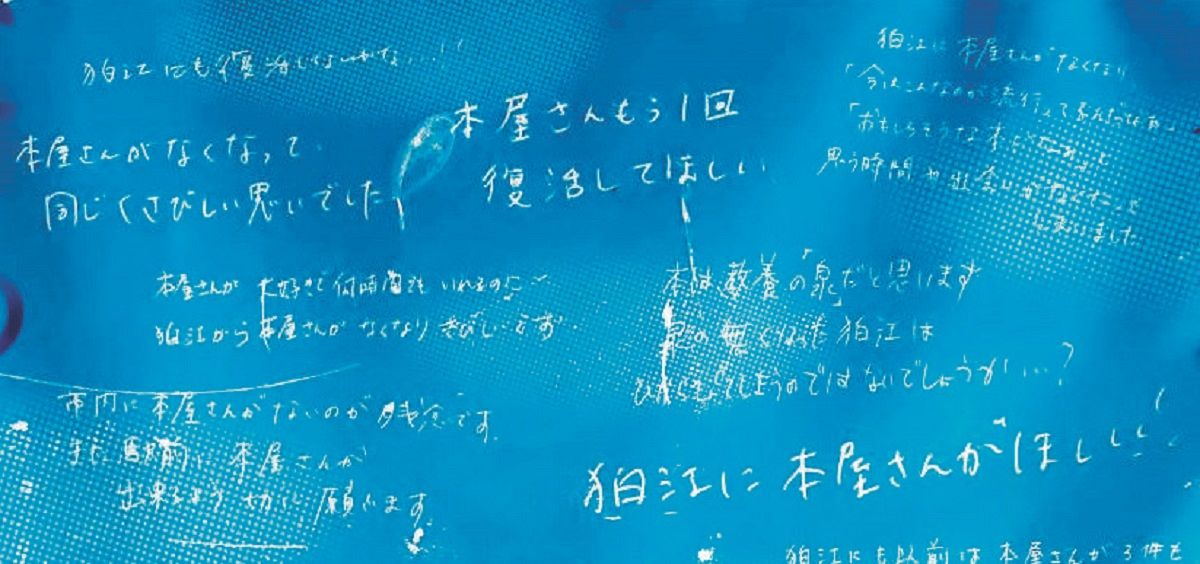 狛江にも復活しないかな…!!
本屋さんがなくなって
同じくさびしい思いでした
本屋さんもう1回
復活してほしい
狛江に本屋さんがなくなり
「今はこんなのが流行ってるんだなあ」
「おもしろそうな本だなあ」と
思う時間や出会いがなくなって
しまいました
本屋さんが大好きで何時間でもいれるのに
狛江から本屋さんがなくなりさびしいです
本は教養の「泉」だと思います
泉の無くなった狛江は
しまうのではないでしょうか…?
市内に本屋さんがないのが残念です。
また駅前に本屋さんが
出来るよう切に願います。
狛江に本屋さんがほしいい!
狛江にも以前は本屋さんが3件も